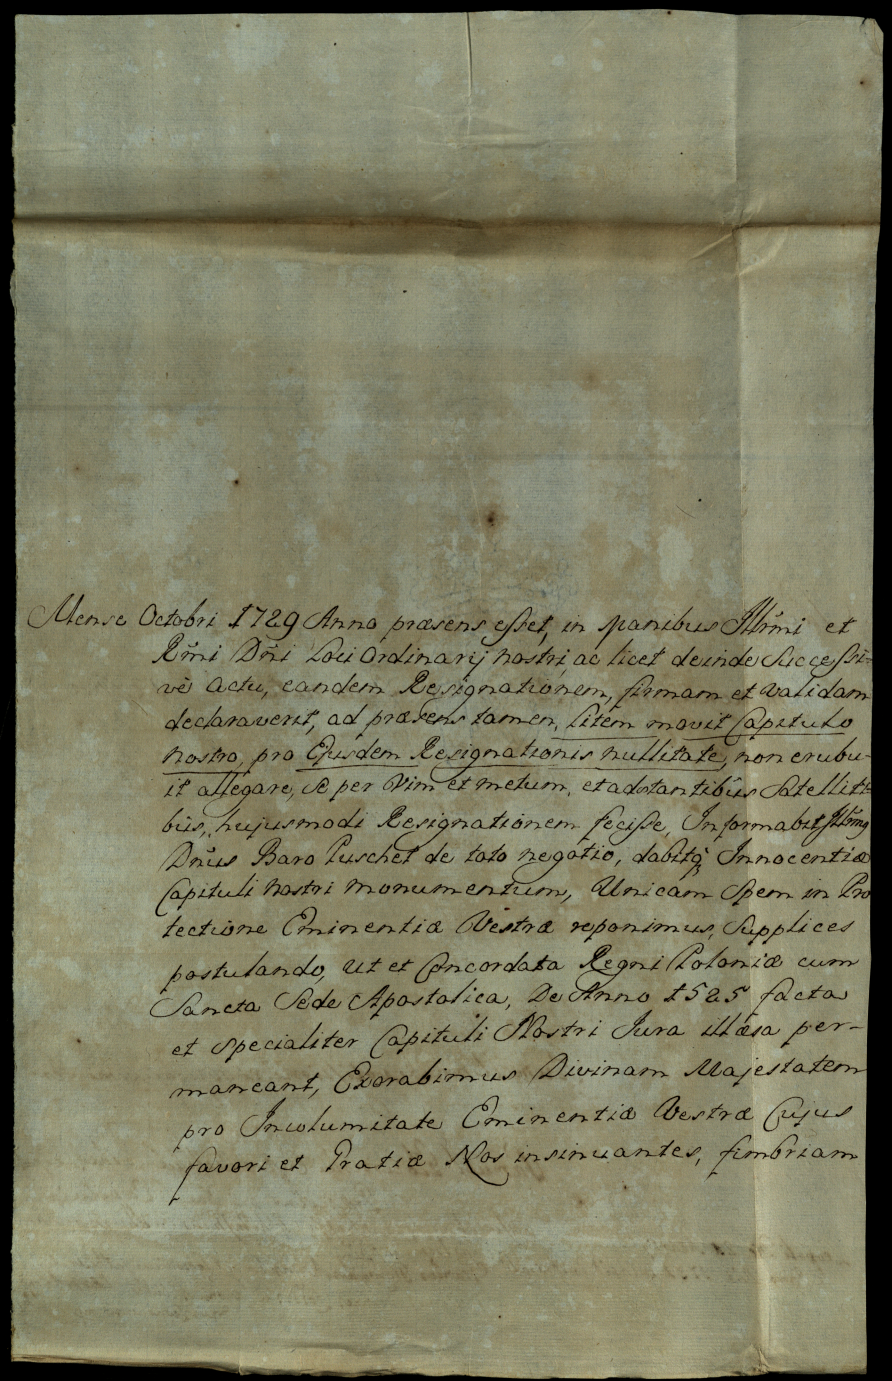 Mense Octobri 1729 Anno præsens esset, in manibus Illr̃mi et
Rm̃i Dñi Loci Ordinarij nostri, ac licet deinde Successi-
vè actu, eandem Resignationem, firmam et validam
declaraverit, ad præsens tamen, litem movit Capitulo
nostro, pro Ejusdem Resignationis nullitate, non erubu-
it allegare, se per Vim et metum, et adstantibûs Satelliti-
bûs, hujusmodi Resignationem fecisse, Informabit Illr̃mg
Dñus Baro Puschet de toto negotio, dabitq̃ Innocentiæ
Capituli nostri monumentum, Unicam Spem in Pro
tectione Eminentiæ Vestræ reponimus, Supplices
postulando, ut et Concordata Regni Poloniæ cum
Sancta Sede Apostolica, De Anno 1525 facta
et specialiter Capituli Nostri Jura illæsa per-
maneant, Exorabimus Divinam Majestatem
pro Incolumitate Eminentiæ Vestræ Cujus
favori et Gratiæ Nos insinuantes, fimbriam